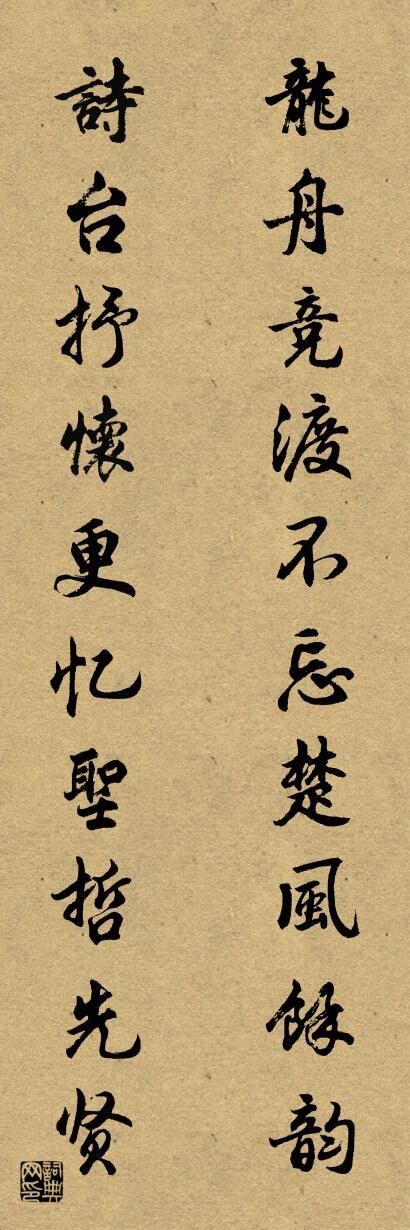 龍舟竞渡不忘楚風餘韵
詩台抒懷更忆聖哲先贤
詞典网印